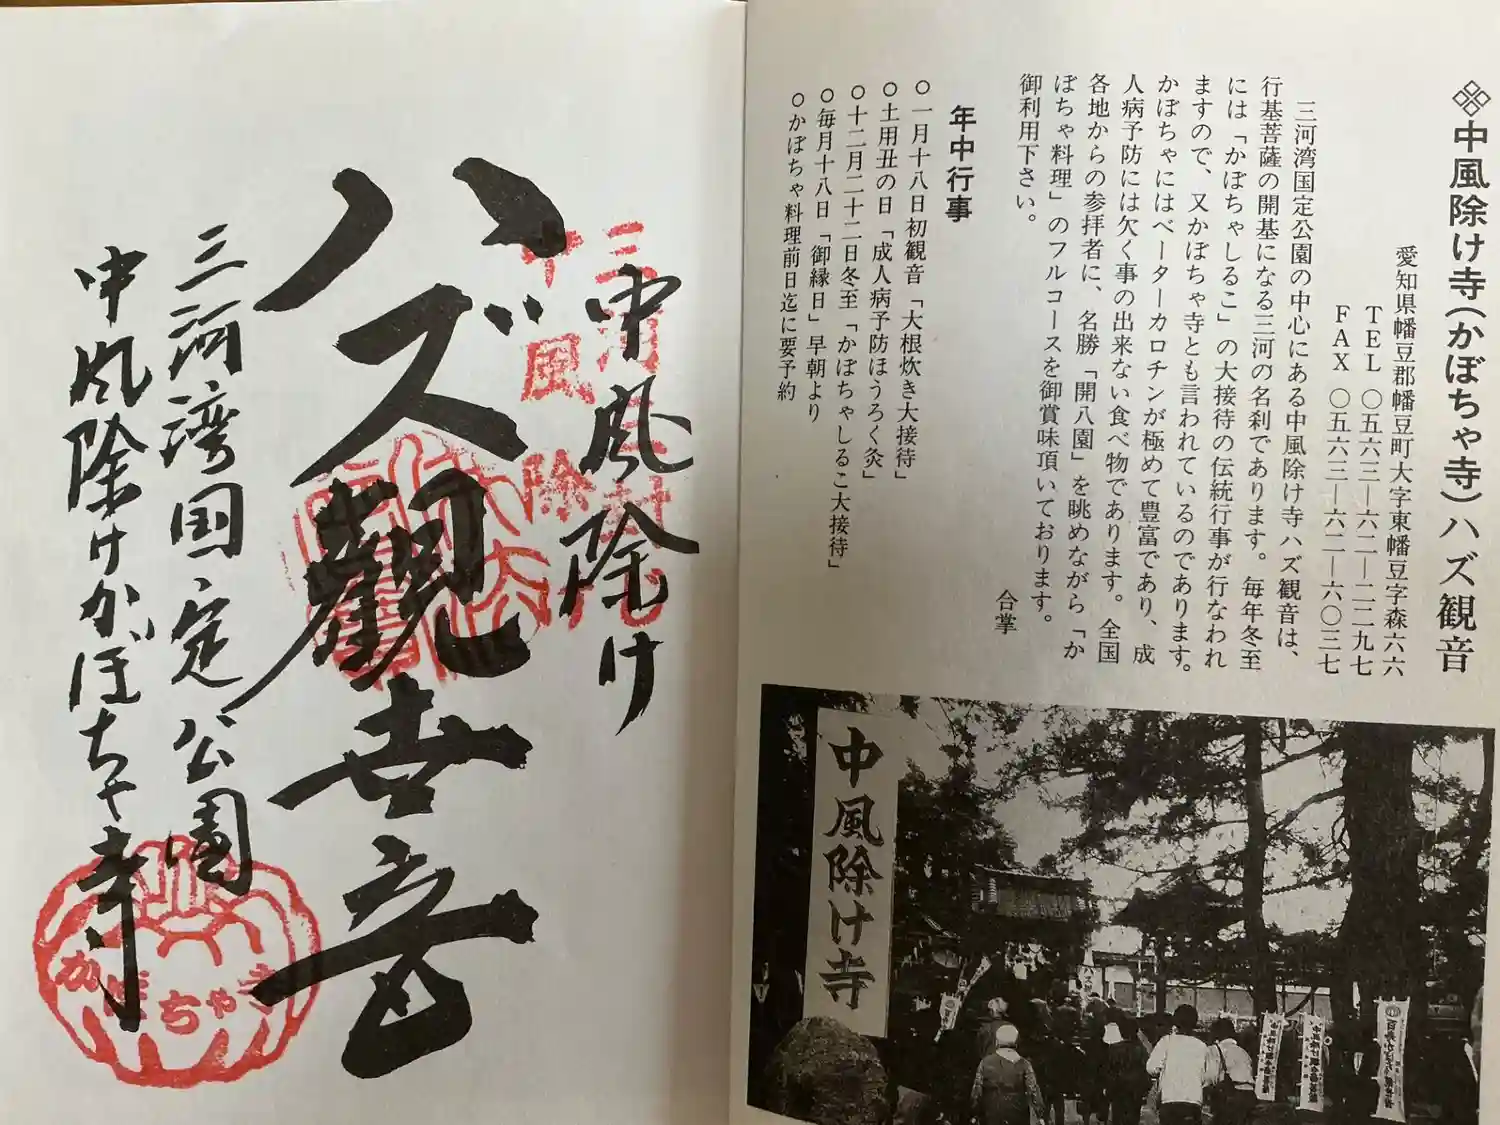 中風除け寺(かぼちゃ寺)ハズ観音
愛知県幡豆郡幡豆町大字東幡豆字森六六
TEL 〇五六三―六二―二二九七
FAX 〇五六三―六二―六〇三七
三河湾国定公園の中心にある中風除け寺ハズ観音は、
行基菩薩の開基になる三河の名刹であります。毎年冬至
には「かぼちゃしるこ」の大接待の伝統行事が行なわれ
ますので、又かぼちゃ寺とも言われているのであります。
かぼちゃにはベーターカロチンが極めて豊富であり、成
人病予防には欠く事の出来ない食べ物であります。全国
各地からの参拝者に、名勝「開八園」を眺めながら「か
ぼちゃ料理」のフルコースを御賞味頂いております。
御利用下さい。
合掌
年中行事
○一月十八日初観音「大根炊き大接待」
○土用丑の日「成人病予防ほうろく灸」
○十二月二十二日冬至「かぼちゃしるこ大接待」
○毎月十八日「御縁日」早朝より
○かぼちゃ料理前日迄に要予約
中風除け寺
中風除け
ハズ観世音
三河湾国定公園
中風除けかぼちゃ寺
かぼちゃき